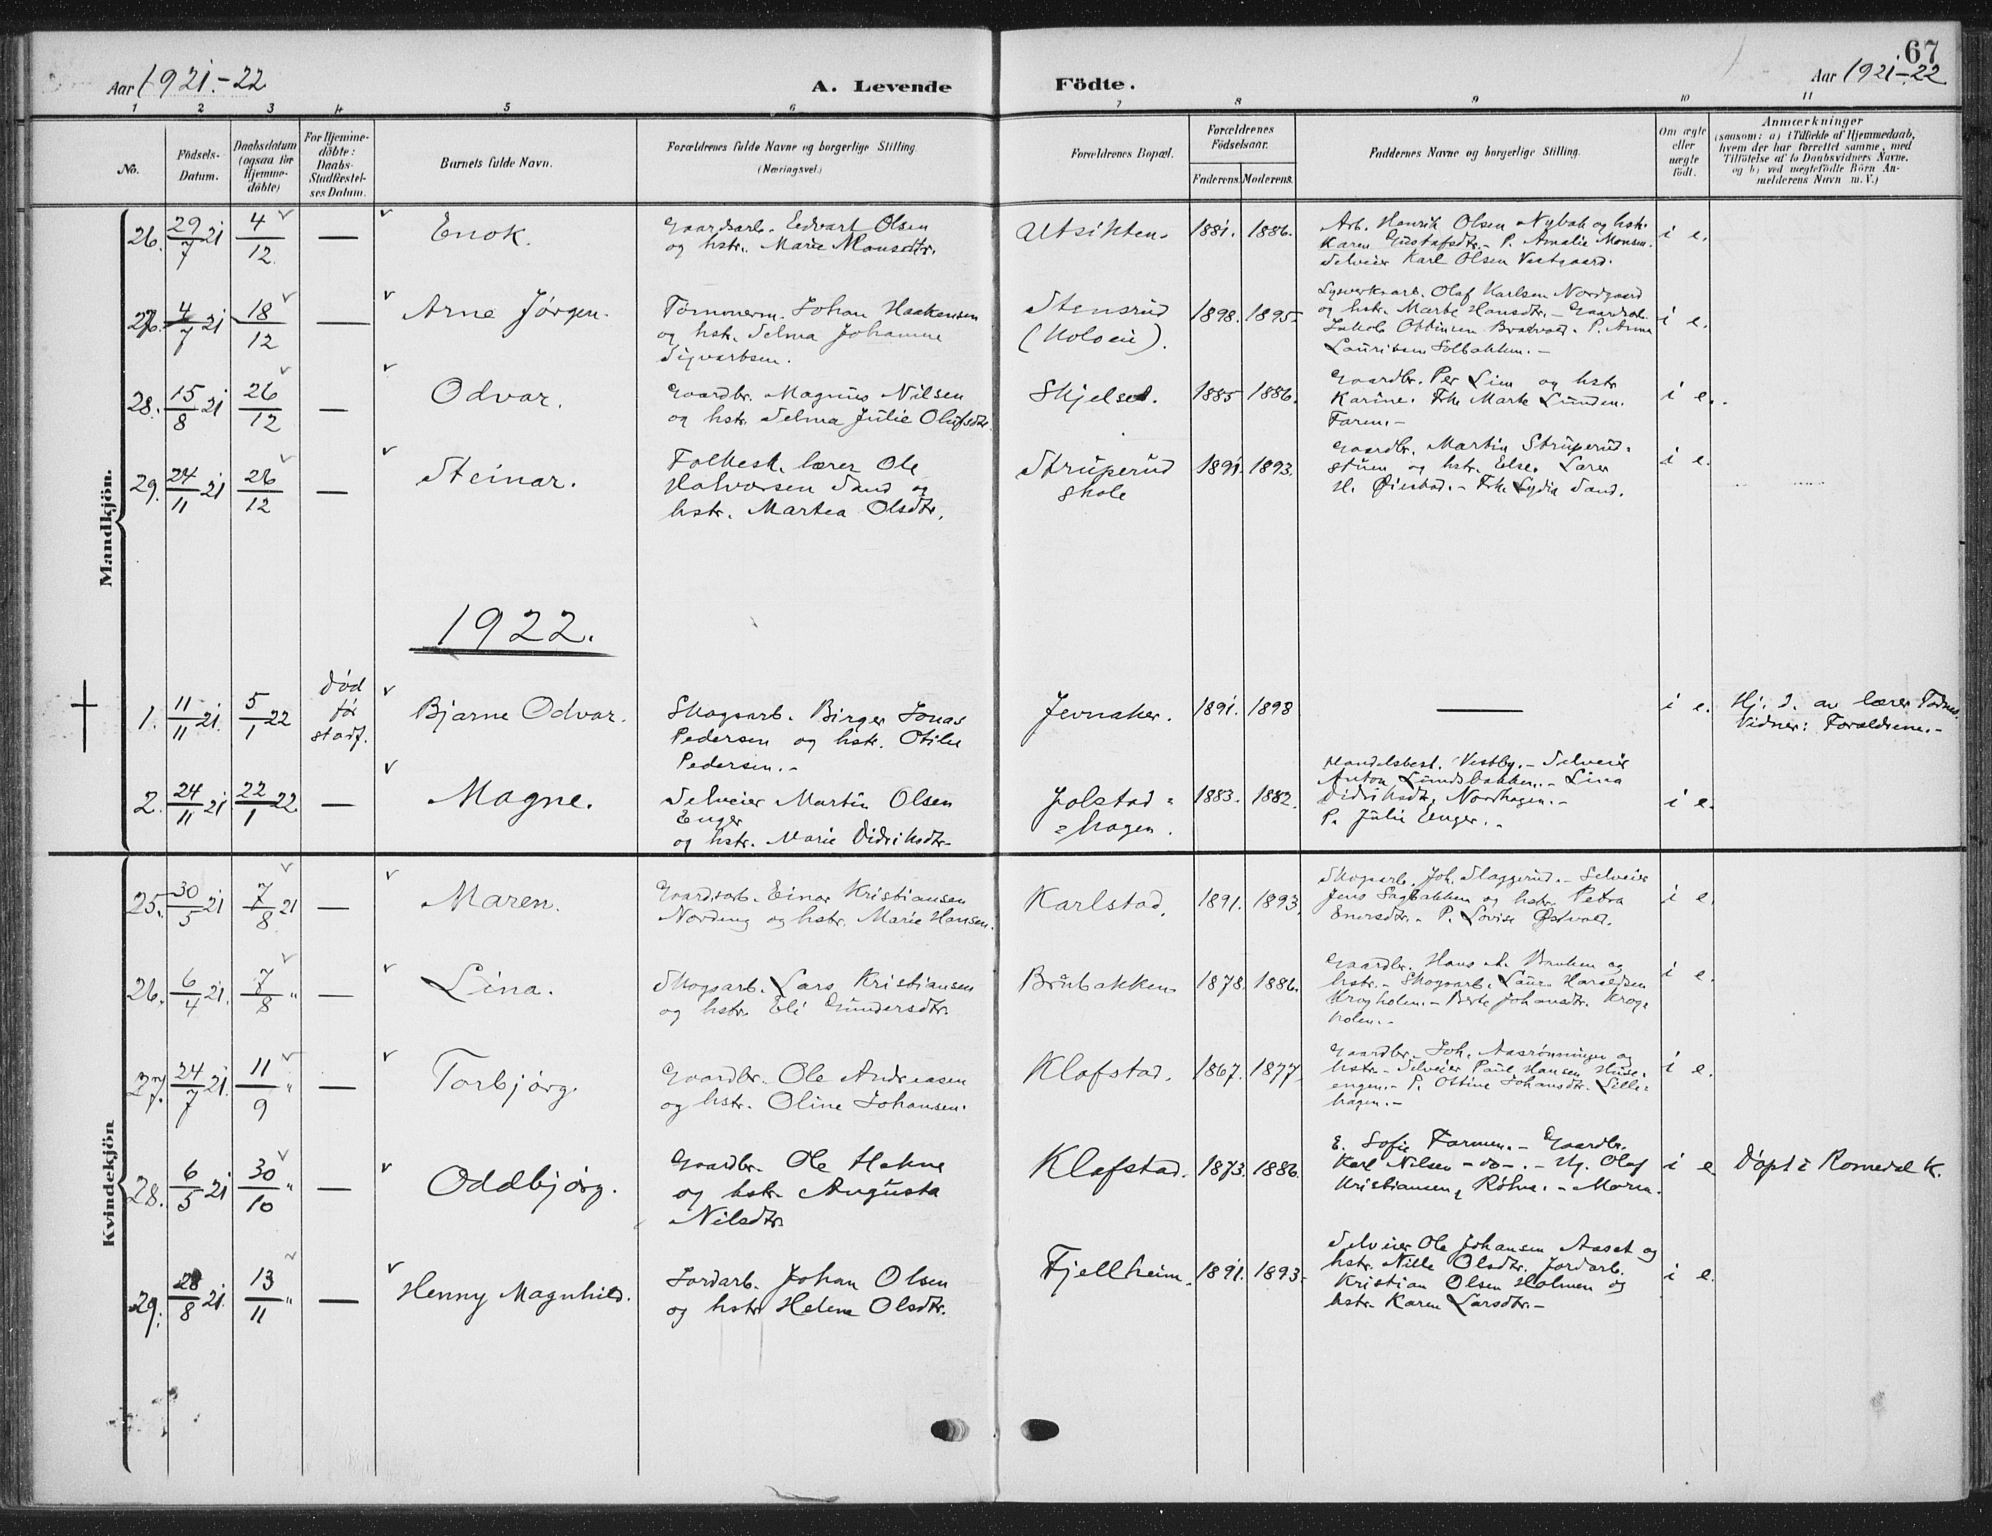 67
Aar 1921.-22
A. Levende Födte.
Aar 1921.-22
1 2 3 4 5 6 7 8 9 10 11
No.
Födsels-
Datum.
Daabsdatum
(ogsaa for
Hjemme-
döbte)
For Hjemme-
döbte:
Daabs-
Stadfæstel-
ses Datum.
Barnets fulde Navn.
Forældrenes fulde Navne og borgerlige Stilling
(Næringsvei.)
Forældrenes Bopæl.
Forældrenes
Födselsaar.
Faderens. Moderens.
Faddernes Navne og borgerlige Stilling.
Om ægte
eller
uægte
födt.
Anmærkninger
(saasom: a) i Tilfælde af Hjemmedaab,
hvem der har forrettet samme, med
Tilföielse af to Daabsvidners Navne.
og b) ved uægtefödte Börn An-
melderens Navn m. V.)
Mandkjön.
26. 29/7 21 4/12 — Enok.
Gaardsarb. Edvart Olsen
og hstr. Marie Monsdtr.
Utsikten. 1881. 1886.
Arb. Henrik Olsen Nybak og hstr.
Karen Gustafsdtr.- P. Amalie Monsen.
Selveier Karl Olsen Vestgaard.
i e.
27. 4/7 21 18/12 — Arne Jørgen.
Tømmerm. Johan Haakensen
og hstr. Selma Johanne
Sigvartsen.
Stensrud
(Koloen). 1898. 1895.
Olaf Karlsen Nordgaard
og hstr. Marte Hansdtr. - Gaardsarb.
Jakob Ottinsen P. Anna
Lauritsen Solbakken. -
i e.
28. 15/8 21 26/12 — Odvar.
Gaardbr. Magnus Nilsen
og hstr. Selma Julie Olufsdtr.
Skjelset. 1885 1886.
Gaardbr. Per Lien og hstr
Karine. Frk. Marte Lunden.
Faren.-
i e.
29. 24/11 21 26/12 — Steinar.
Folkesk. lærer Ole
Halvorsen Sand og
hstr. Martea Olsdtr.
Struperud
skole 1891. 1893.
Gaardbr. Martin Struperud-
stuen og hstr. Else. Lærer
H. Øiestad. - Frk. Lydia Sand.
i e.
1922.
1. 11/11 21. 5/1 22
Død
før
stadf.
Bjarne Odvar.
Skogsarb. Birger Jonas
Pedersen og hstr. Otilie
Pedersen.-
Jevnaker. 1891. 1898 —
i e.
Hj. d. av lærer
Vidner: Forældrene.-
2. 24/11 21 22/1 22. — Magne.
Selveier Martin Olsen
Enger
og hstr. Marie Didriksdtr.
Jolstad-
hagen. 1883. 1882.
Handelsbest. Vestby. - Selveier
Anton Lundsbakken. - Lina
Didriksdtr. Nordhagen. -
P. Julie Enger. -
i e.
Kvindekjön
25. 30/5 21 7/8 21 — Maren.
Gaardsarb. Einar Kristiansen
Nordeng og hstr. Marie Hansen.
Karlstad. 1891. 1893.
Skogsarb. Joh. Slaggerud. - Selveier
Jens Sagbakken og hstr. Petra
Enersdtr. - P. Lovise Østvold.
i e.
26. 6/4 21. 7/8 " — Lina.
Skogsarb. Lars Kristiansen
og hstr. Eli Gundersdtr.
Brubakken. 1878. 1886.
Gaardbr. Hans A. Bruken og
hstr. - Skogsarb. Haraldsen
Krogholen. - Berte Johansdtr. Krog-
holen. -
i e.
27. 24/7 21. 11/9 " — Torbjørg.
Gaardbr. Ole Andreasen
og hstr. Oline Johansen.
Klofstad. 1867. 1877.
Gaardbr. Joh. Aasrønningen og
hstr. - Selveier Paul Hansen Huse-
engen. - P. Ottine Johansdtr. Lille-
hagen. -
i e.
28. 6/5 21 30/10 " — Oddbjørg.
Gaardbr. Ole Hohne
og hstr. Augusta
Nilsdtr.
Klafstad. 1873. 1886.
E. Sofie Farmen. - Gaardbr.
Karl Nilsen -do-. - Ug. Olaf
Kristiansen, Røhne. - Moren.
i e
Døpt i Romedal K.
29. 28/8 21. 13/11 " — Henny Magnhild.
Jordarb. Johan Olsen
og hstr. Helene Olsdtr.
Fjellheim. 1891. 1893.
Selveier Ole Johansen Aaset og
hstr. Nille Olsdtr. Jordarb.
Kristian Olsen Holmen og
hstr. Karen Larsdtr. -
i e.